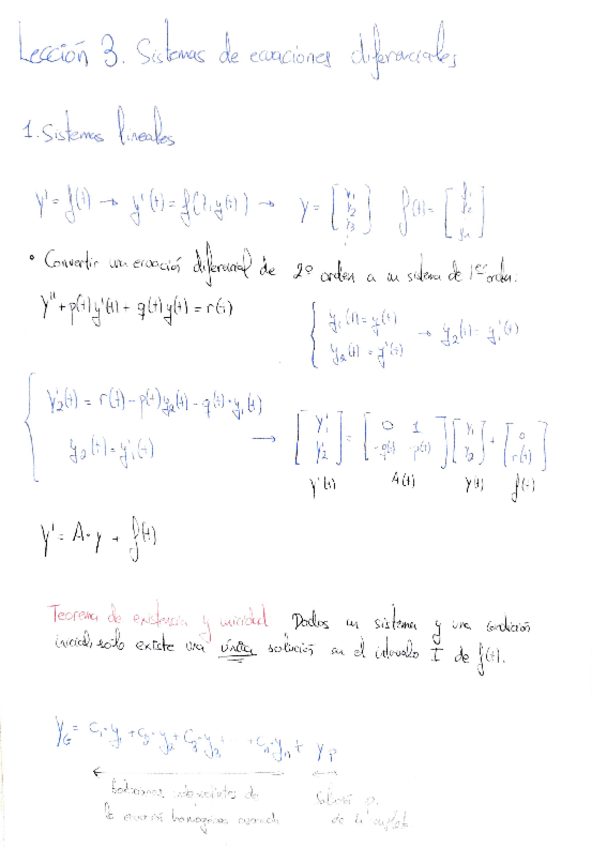 Lección 3. Sistemas de ecuaciones diferenciales
1. Sistemas lineales
y' = f(t) → y'(t) = f(t, y(t)) → y = [y₁ y₂ y₃ ⋮] f(t) = [f₁ f₂ ⋮ fₙ]
• Convertir un ecuación diferencial de 2º orden a un sistema de 1er orden:
y'' + p(t) y'(t) + q(t) y(t) = r(t)
{ y₁(t) = y(t)
y₂(t) = y'(t) → y₂(t) = y₁'(t)
{ y₂'(t) = r(t) - p(t) y₂(t) - q(t) · y₁(t)
y₂(t) = y₁'(t)
→ [y₁' y₂'] = [0 1 -q(t) -p(t)] [y₁ y₂] + [0 r(t)]
y'(t) A(t) y(t) f(t)
y' = A · y + f(t)
Teorema de existencia y unicidad Dados un sistema y una condición
inicial, solo existe una única solución en el intervalo I de f(t).
y_G = C₁·y₁ + C₂·y₂ + C₃·y₃ + ··· + Cₙ·yₙ + y_P
Soluciones independientes de
la ecuación homogénea
Solución p.
de la completa